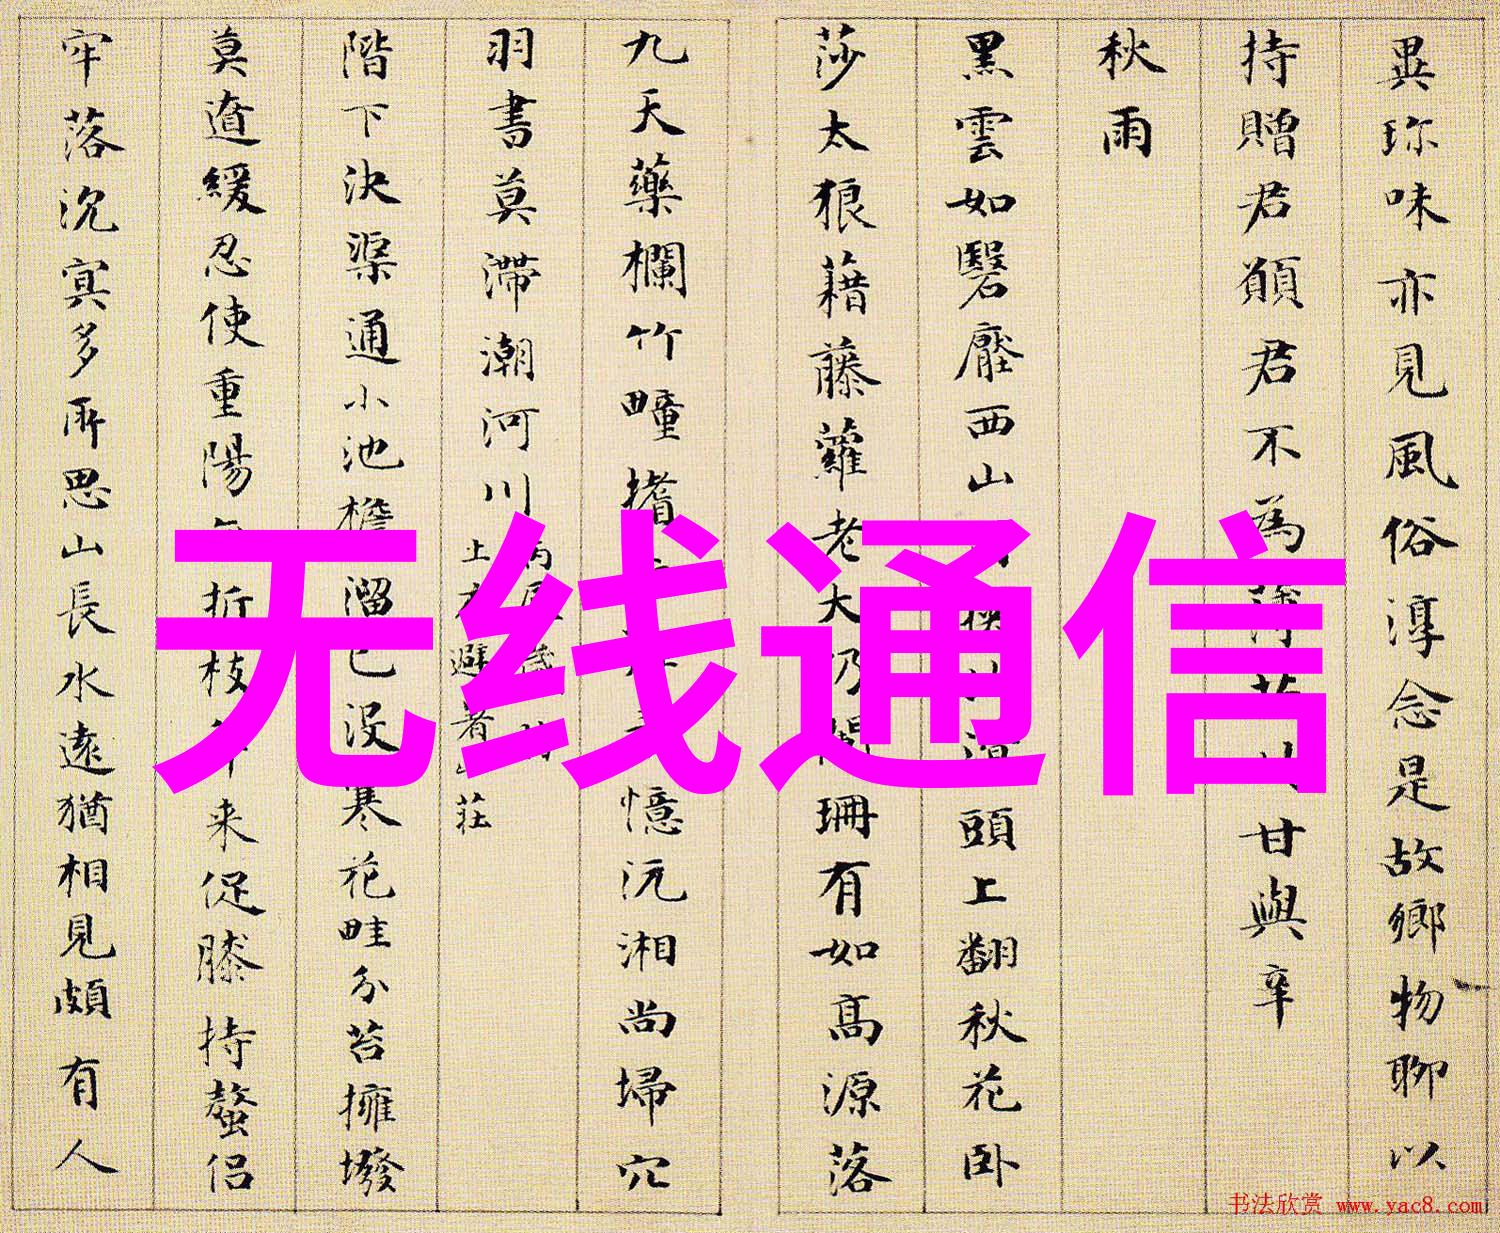 異珎味亦見風俗淳念是故鄉物聊以
持贈君願君不為薄甘與辛
秋雨
黑雲如毉壓西山頭上翻秋花卧
莎太狼藉藤蘿老大乃闌珊有如高源落
九天藥欄竹疃憶沅湘尚埽穴
羽書莫滯潮河川
土避著山莊
階下決渠通小池檐溜已没寒花畦分苔擁墢
莫遒緩忍使重陽折枝来促膝持螯侣
牢落沉冥多所思山長水遠猶相見頗有人
无线通信
书法欣赏 www.yac8.com